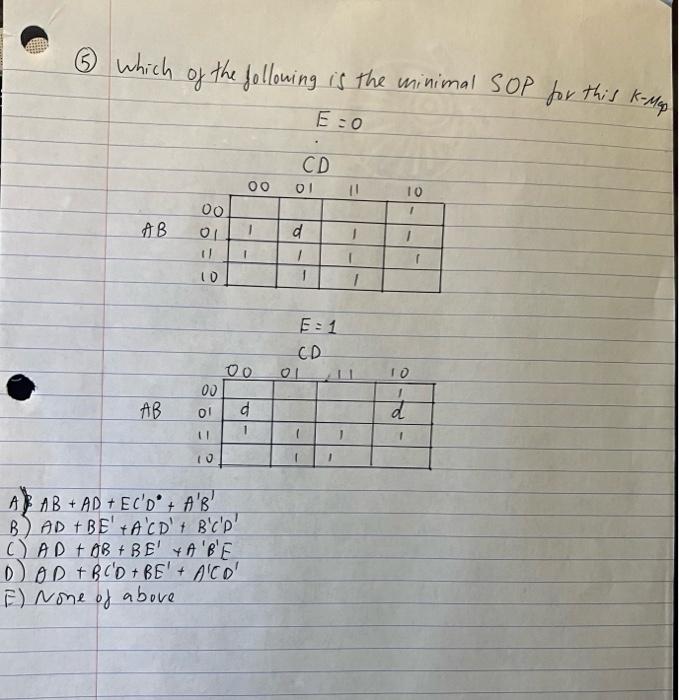 ⑤ which of the following is the minimal SOP for this K-Map
E = 0
CD
00 01 11 10
00 1
AB 01 1 d 1 1
11 1 1 1 1
10 1 1
E = 1
CD
00 01 11 10
00 1
AB 01 d d
11 1 1 1 1
10 1 1
A) AB + AD + EC'D' + A'B'
B) AD + BE' + A'CD' + B'C'D'
C) AD + AB + BE' + A'B'E
D) AD + BC'D + BE' + A'CD'
E) None of above